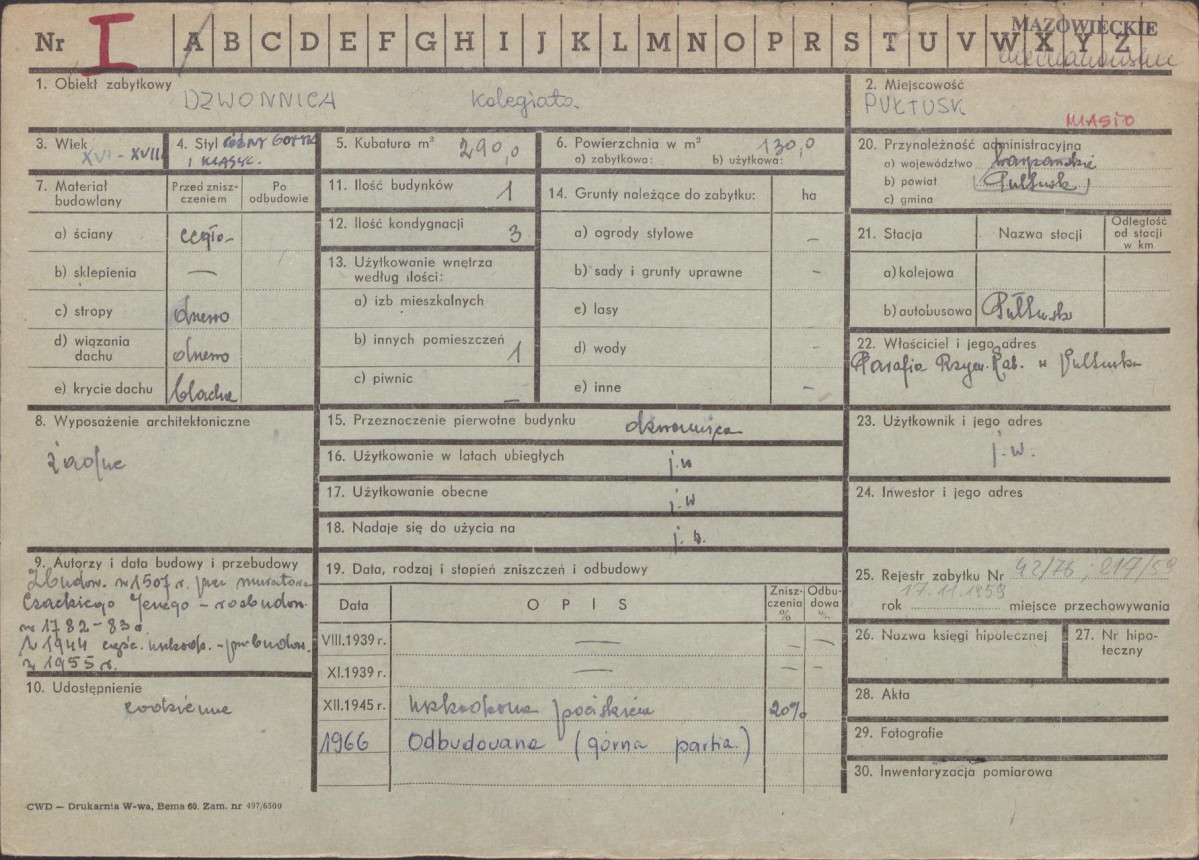 Nr I A B C D E F G H I J K L M N O P R S T U V W X Y Z
MAZOWIECKIE
ciechanowskie
1. Obiekt zabytkowy
DZWONNICA Kolegiata
2. Miejscowość
PUŁTUSK
MIASTO
3. Wiek
XVI - XVIII
4. Styl PÓŹNY GOTYK
I KLASYC.
5. Kubatura m³ 290,0
6. Powierzchnia w m² 130,0
a) zabytkowa: b) użytkowa:
20. Przynależność administracyjna
a) województwo warszawskie
b) powiat (Pułtusk)
c) gmina
7. Materiał budowlany
Przed zniszczeniem
Po odbudowie
a) ściany cegła
b) sklepienia —
c) stropy drewno
d) wiązania dachu drewno
e) krycie dachu blacha
11. Ilość budynków 1
12. Ilość kondygnacji 3
13. Użytkowanie wnętrza
według ilości:
a) izb mieszkalnych
b) innych pomieszczeń 1
c) piwnic —
14. Grunty należące do zabytku: ha
a) ogrody stylowe –
b) sady i grunty uprawne –
c) lasy
d) wody –
e) inne –
21. Stacja
Nazwa stacji
Odległość od stacji w km
a) kolejowa
b) autobusowa Pułtusk
22. Właściciel i jego adres
Parafia Rzym. Kat. w Pułtusku
8. Wyposażenie architektoniczne
żadne
15. Przeznaczenie pierwotne budynku dzwonnica
16. Użytkowanie w latach ubiegłych j.w
17. Użytkowanie obecne j.w
18. Nadaje się do użycia na j.w.
23. Użytkownik i jego adres
j.w.
24. Inwestor i jego adres
9. Autorzy i data budowy i przebudowy
Zbudow. w 1507 r. przez muratora
Czackiego Jerzego – rozbudow.
w 1782-83 r.
W 1944 część. uszkodz. - odbudow.
w 1955 r.
10. Udostępnienie
codzienne
19. Data, rodzaj i stopień zniszczeń i odbudowy
Data OPIS Zniszczenia % Odbudowa %
VIII.1939 r. — – –
XI.1939 r. — – –
XII.1945 r. uszkodzona pociskiem 20%
1966 Odbudowana (górna partia.)
25. Rejestr zabytku Nr 42/76; 217/59
17.11.1959
rok miejsce przechowywania
26. Nazwa księgi hipotecznej
27. Nr hipoteczny
28. Akta
29. Fotografie
30. Inwentaryzacja pomiarowa
CWD — Drukarnia W-wa, Bema 60. Zam. nr 497/6500